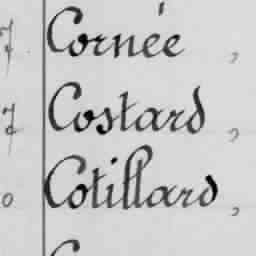 Cornée,
Costard,
Cotillard,